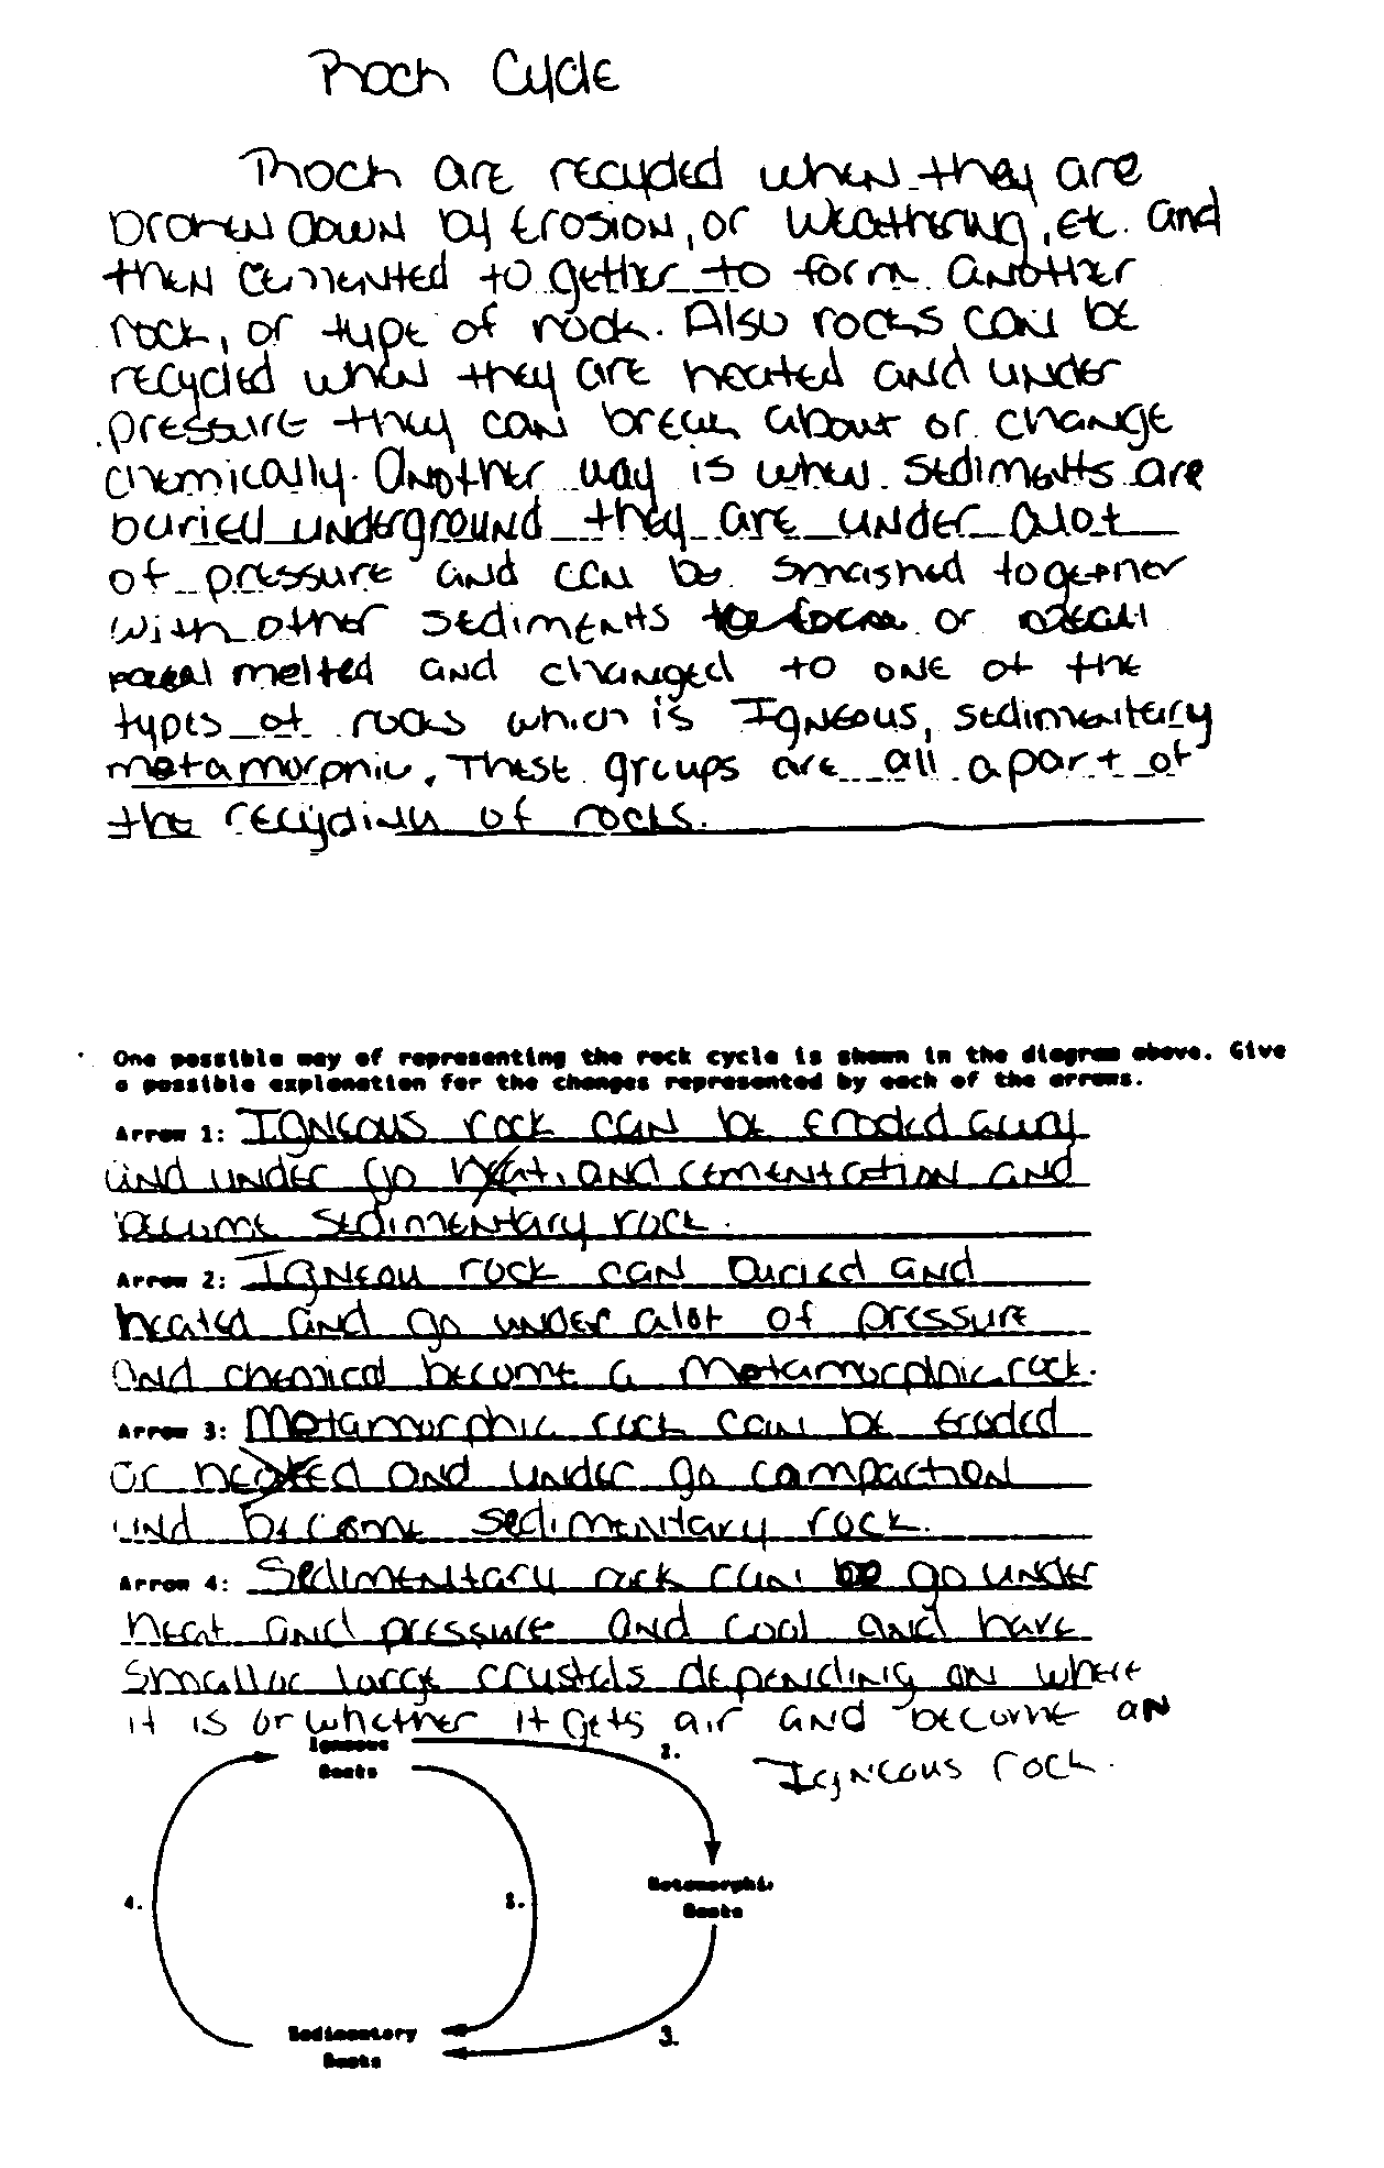 Rock Cycle
Rock are recycled when they are
broken down by Erosion, or Weathering, Etc. and
then cemented to gether to form another
rock, or type of rock. Also rocks can be
recycled when they are heated and under
pressure they can break about or change
chemically. Another way is when sediments are
buried underground they are under alot
of pressure and can be smashed together
with other sediments or
melted and changed to one of the
types of rocks which is Igneous, sedimentary
metamorphic. These groups are all a part of
the recycling of rocks.
One possible way of representing the rock cycle is shown in the diagram above. Give
a possible explanation for the changes represented by each of the arrows.
Arrow 1: Igneous rock can be Eroded away
and under go heat, and cementation and
become sedimentary rock.
Arrow 2: Igneou rock can buried and
heated and go under alot of pressure
and chemical become a metamorphic rock.
Arrow 3: Metamorphic rock can be Eroded
or heated and under go compaction
and become sedimentary rock.
Arrow 4: Sedimentary rock can go under
heat and pressure and cool and have
small or large crystals depending on where
it is or whether it gets air and become an
Igneous rock.
Igneous
Rocks
2.
4.
1.
Metamorphic
Rocks
Sedimentary
Rocks
3.